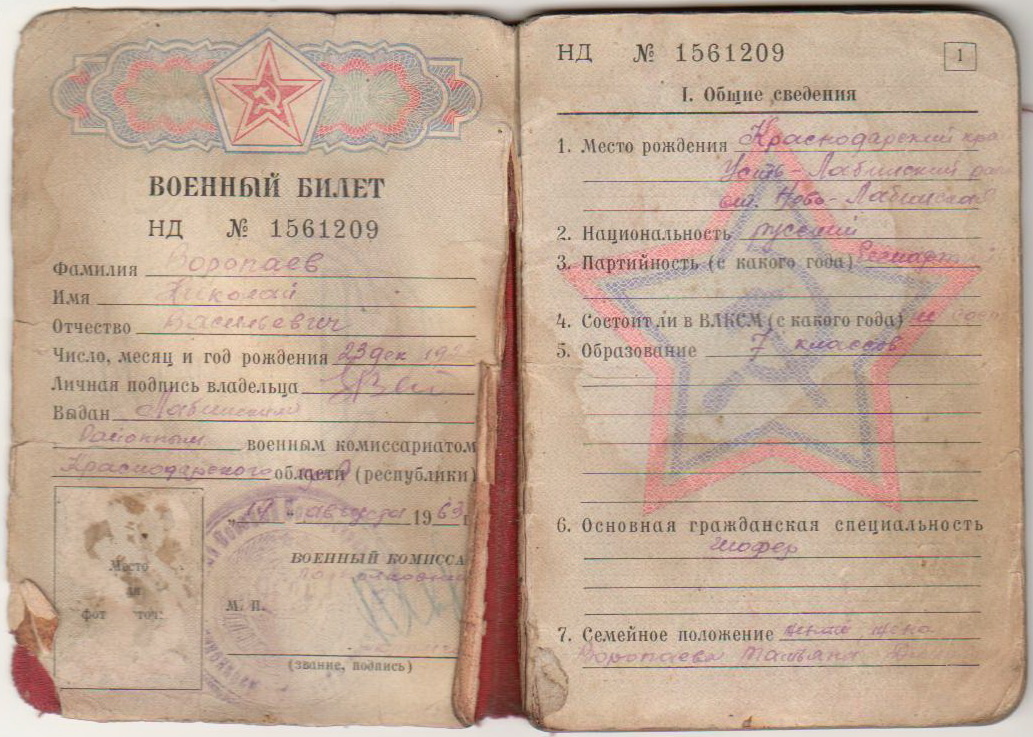 ВОЕННЫЙ БИЛЕТ
НД № 1561209
Фамилия Воропаев
Имя Николай
Отчество Васильевич
Число, месяц и год рождения 23 дек
Личная подпись владельца
Выдан Лабинским
Районным военным комиссариатом
Краснодарского области (республики)
августа 1963 г
ВОЕННЫЙ КОМИССА
Место
фот
М. П.
(звание, подпись)
НД № 1561209
1
I. Общие сведения
1. Место рождения Краснодарский кра
Усть-Лабинский
Ново-Лабинская
2. Национальность русский
3. Партийность (с какого года)
4. Состоит ли в ВЛКСМ (с какого года)
5. Образование 7 классов
6. Основная гражданская специальность
шофер
7. Семейное положение жена
Воропаева Татьяна